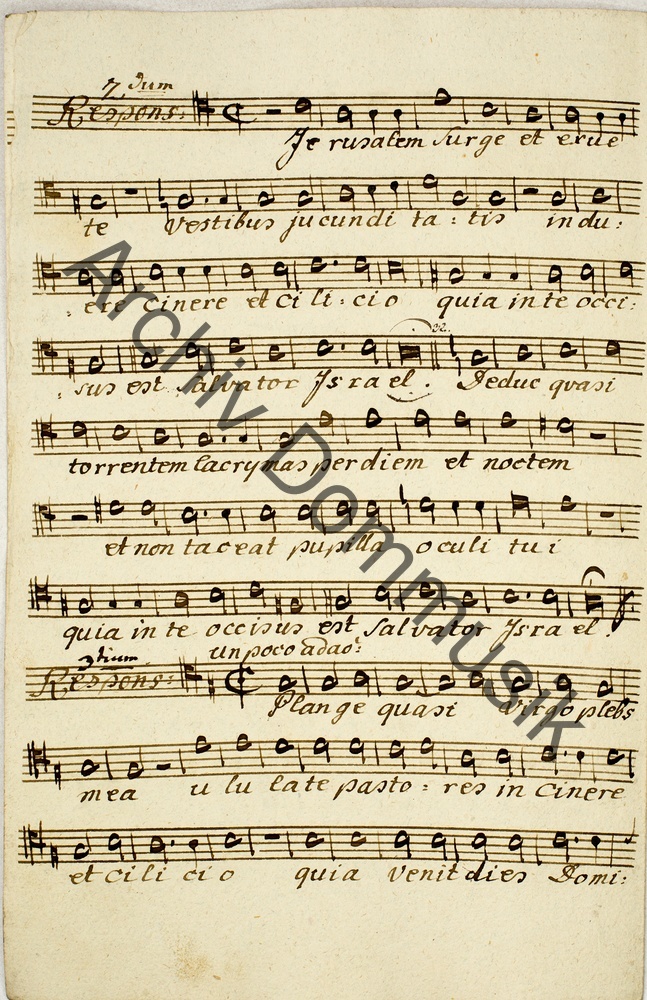 2dum
Respons:
Je rusalem surge et exue
te vestibus jucundi ta: tis indu:
: ere cinere et ci li: cio quia in te occi:
: sus est Salvator Jsra el. Deduc quasi
torrentem lacrymas per diem et noctem
et non taceat pupilla oculi tui
quia in te occisus est Salvator Jsra el.
3tium un poco adao:
Respons:
Plange quasi virgo plebs
mea u lu late pasto: res in cinere
et cili cio quia venit dies Domi:
Archiv Dommusik